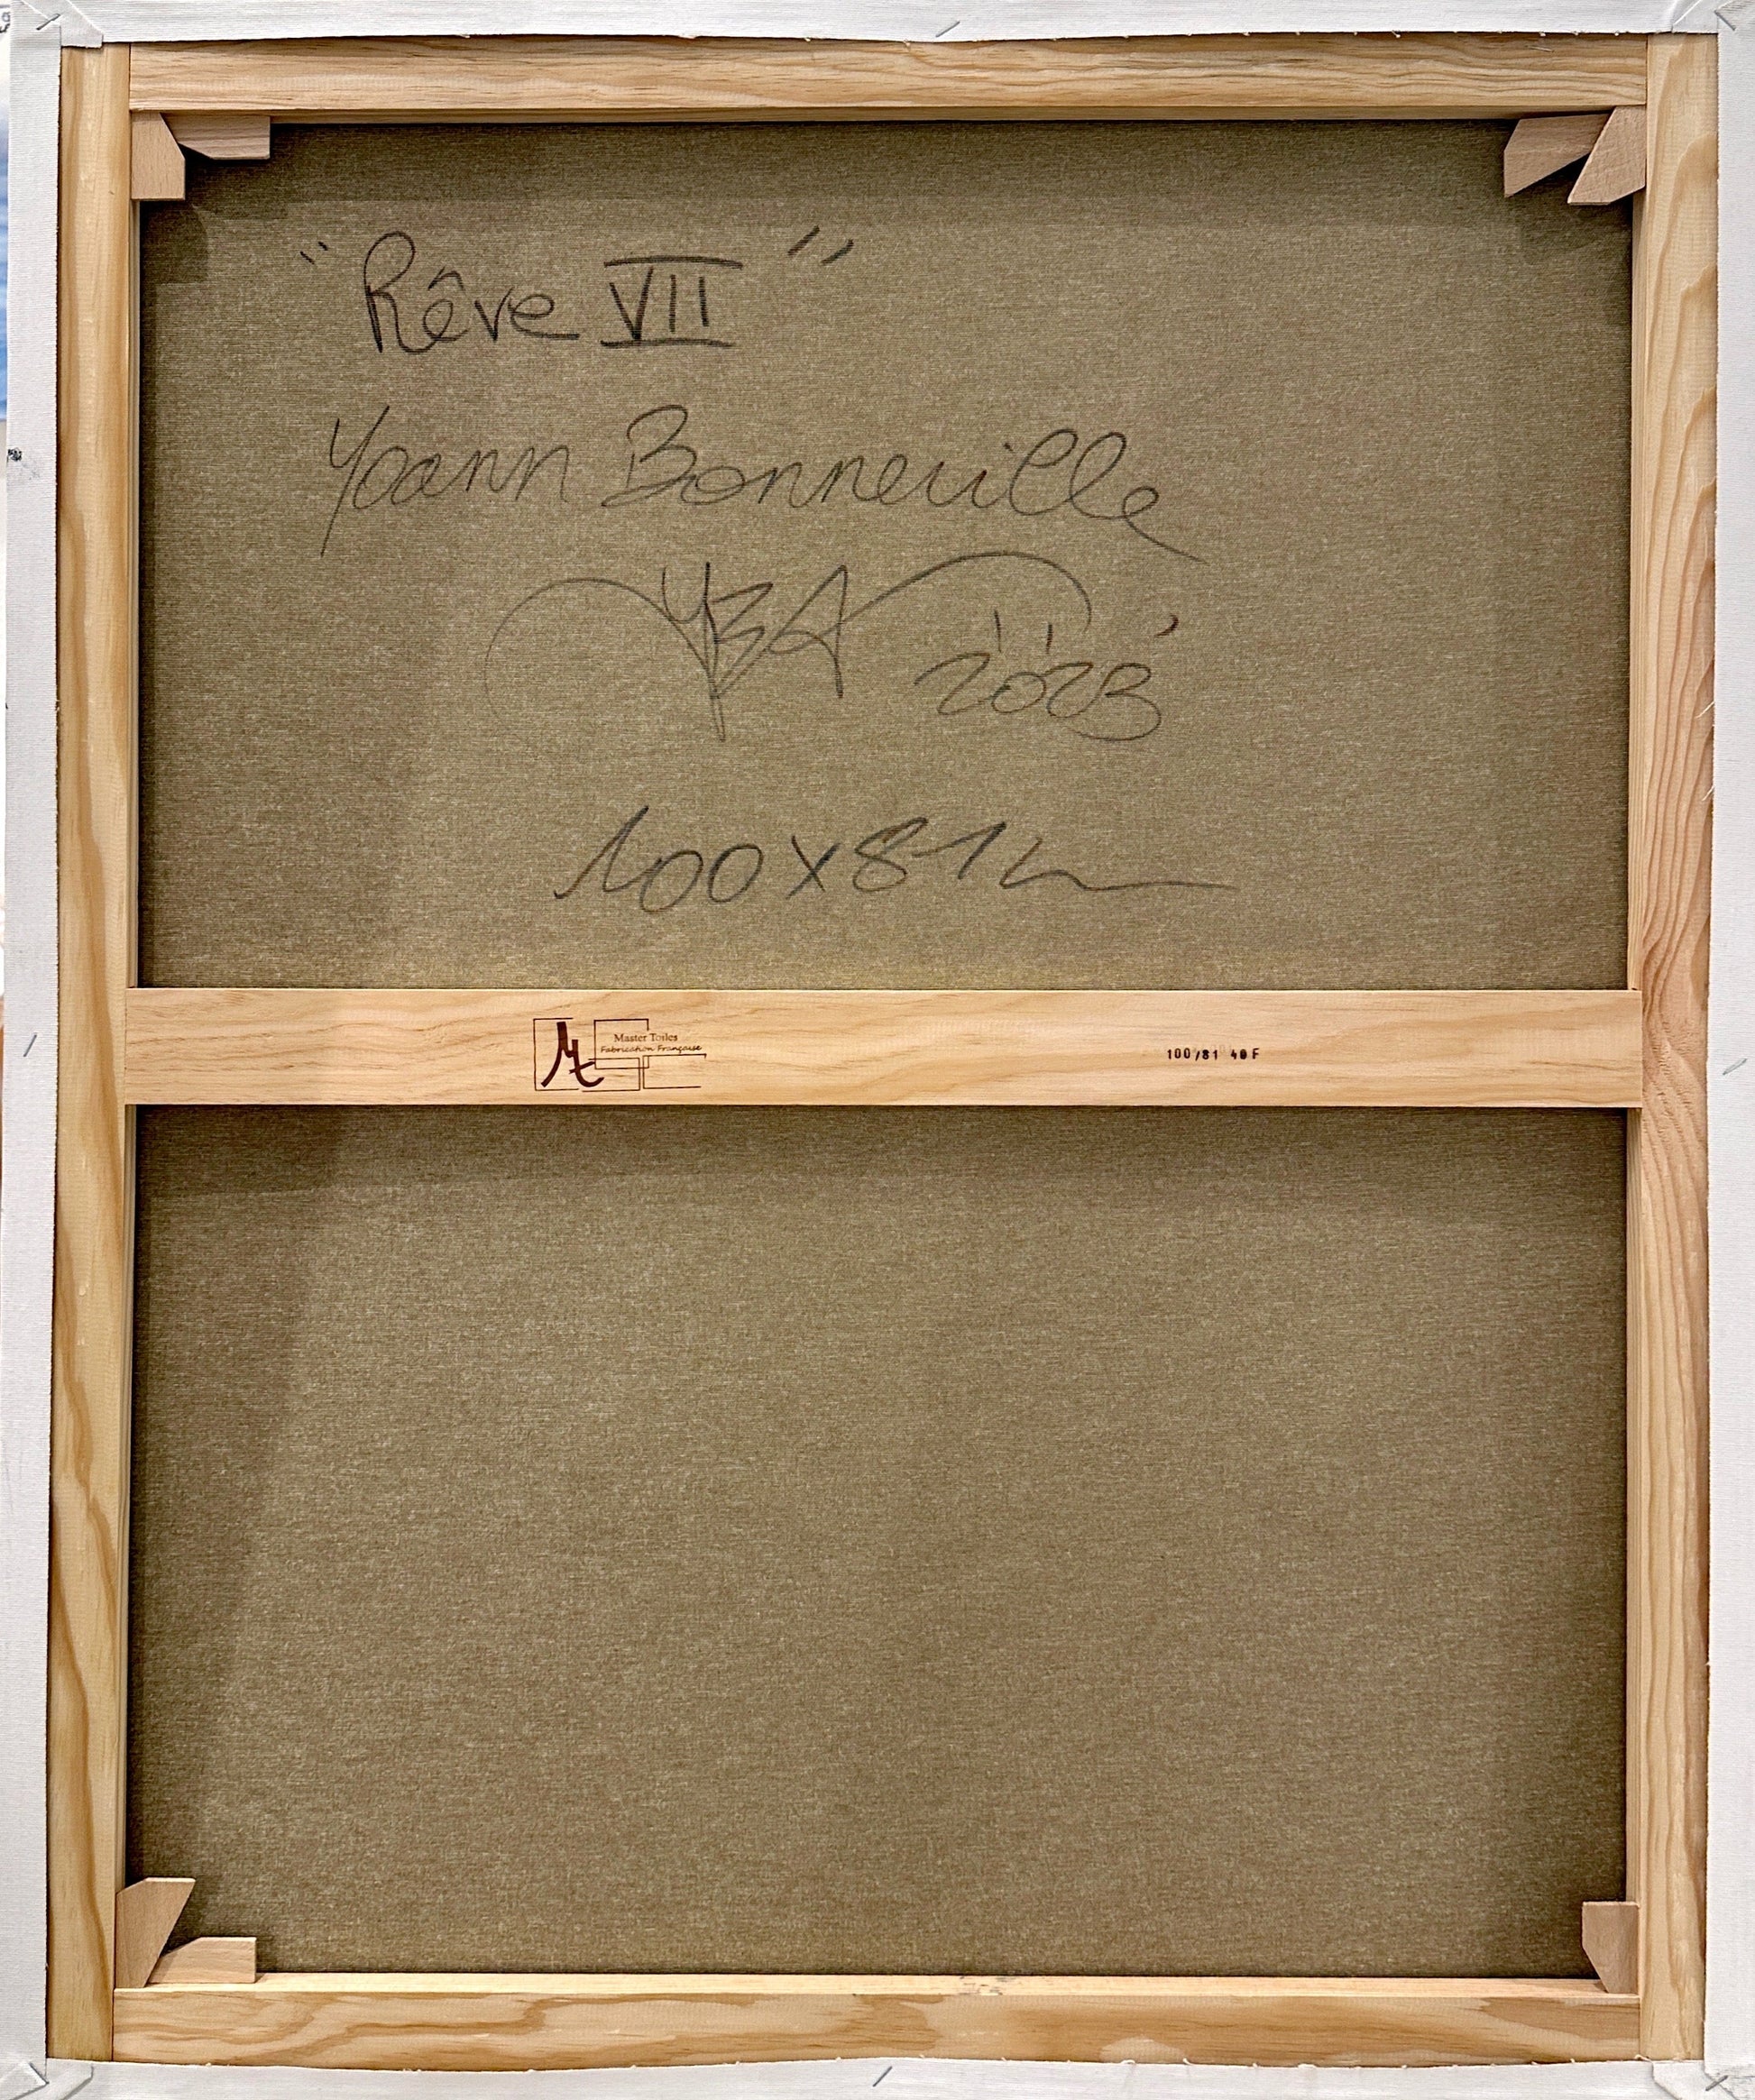 "Rêve VII"
Yoann Bonneville
YBA 2023
100x81
Master Toiles
Fabrication Française
100/81 40F